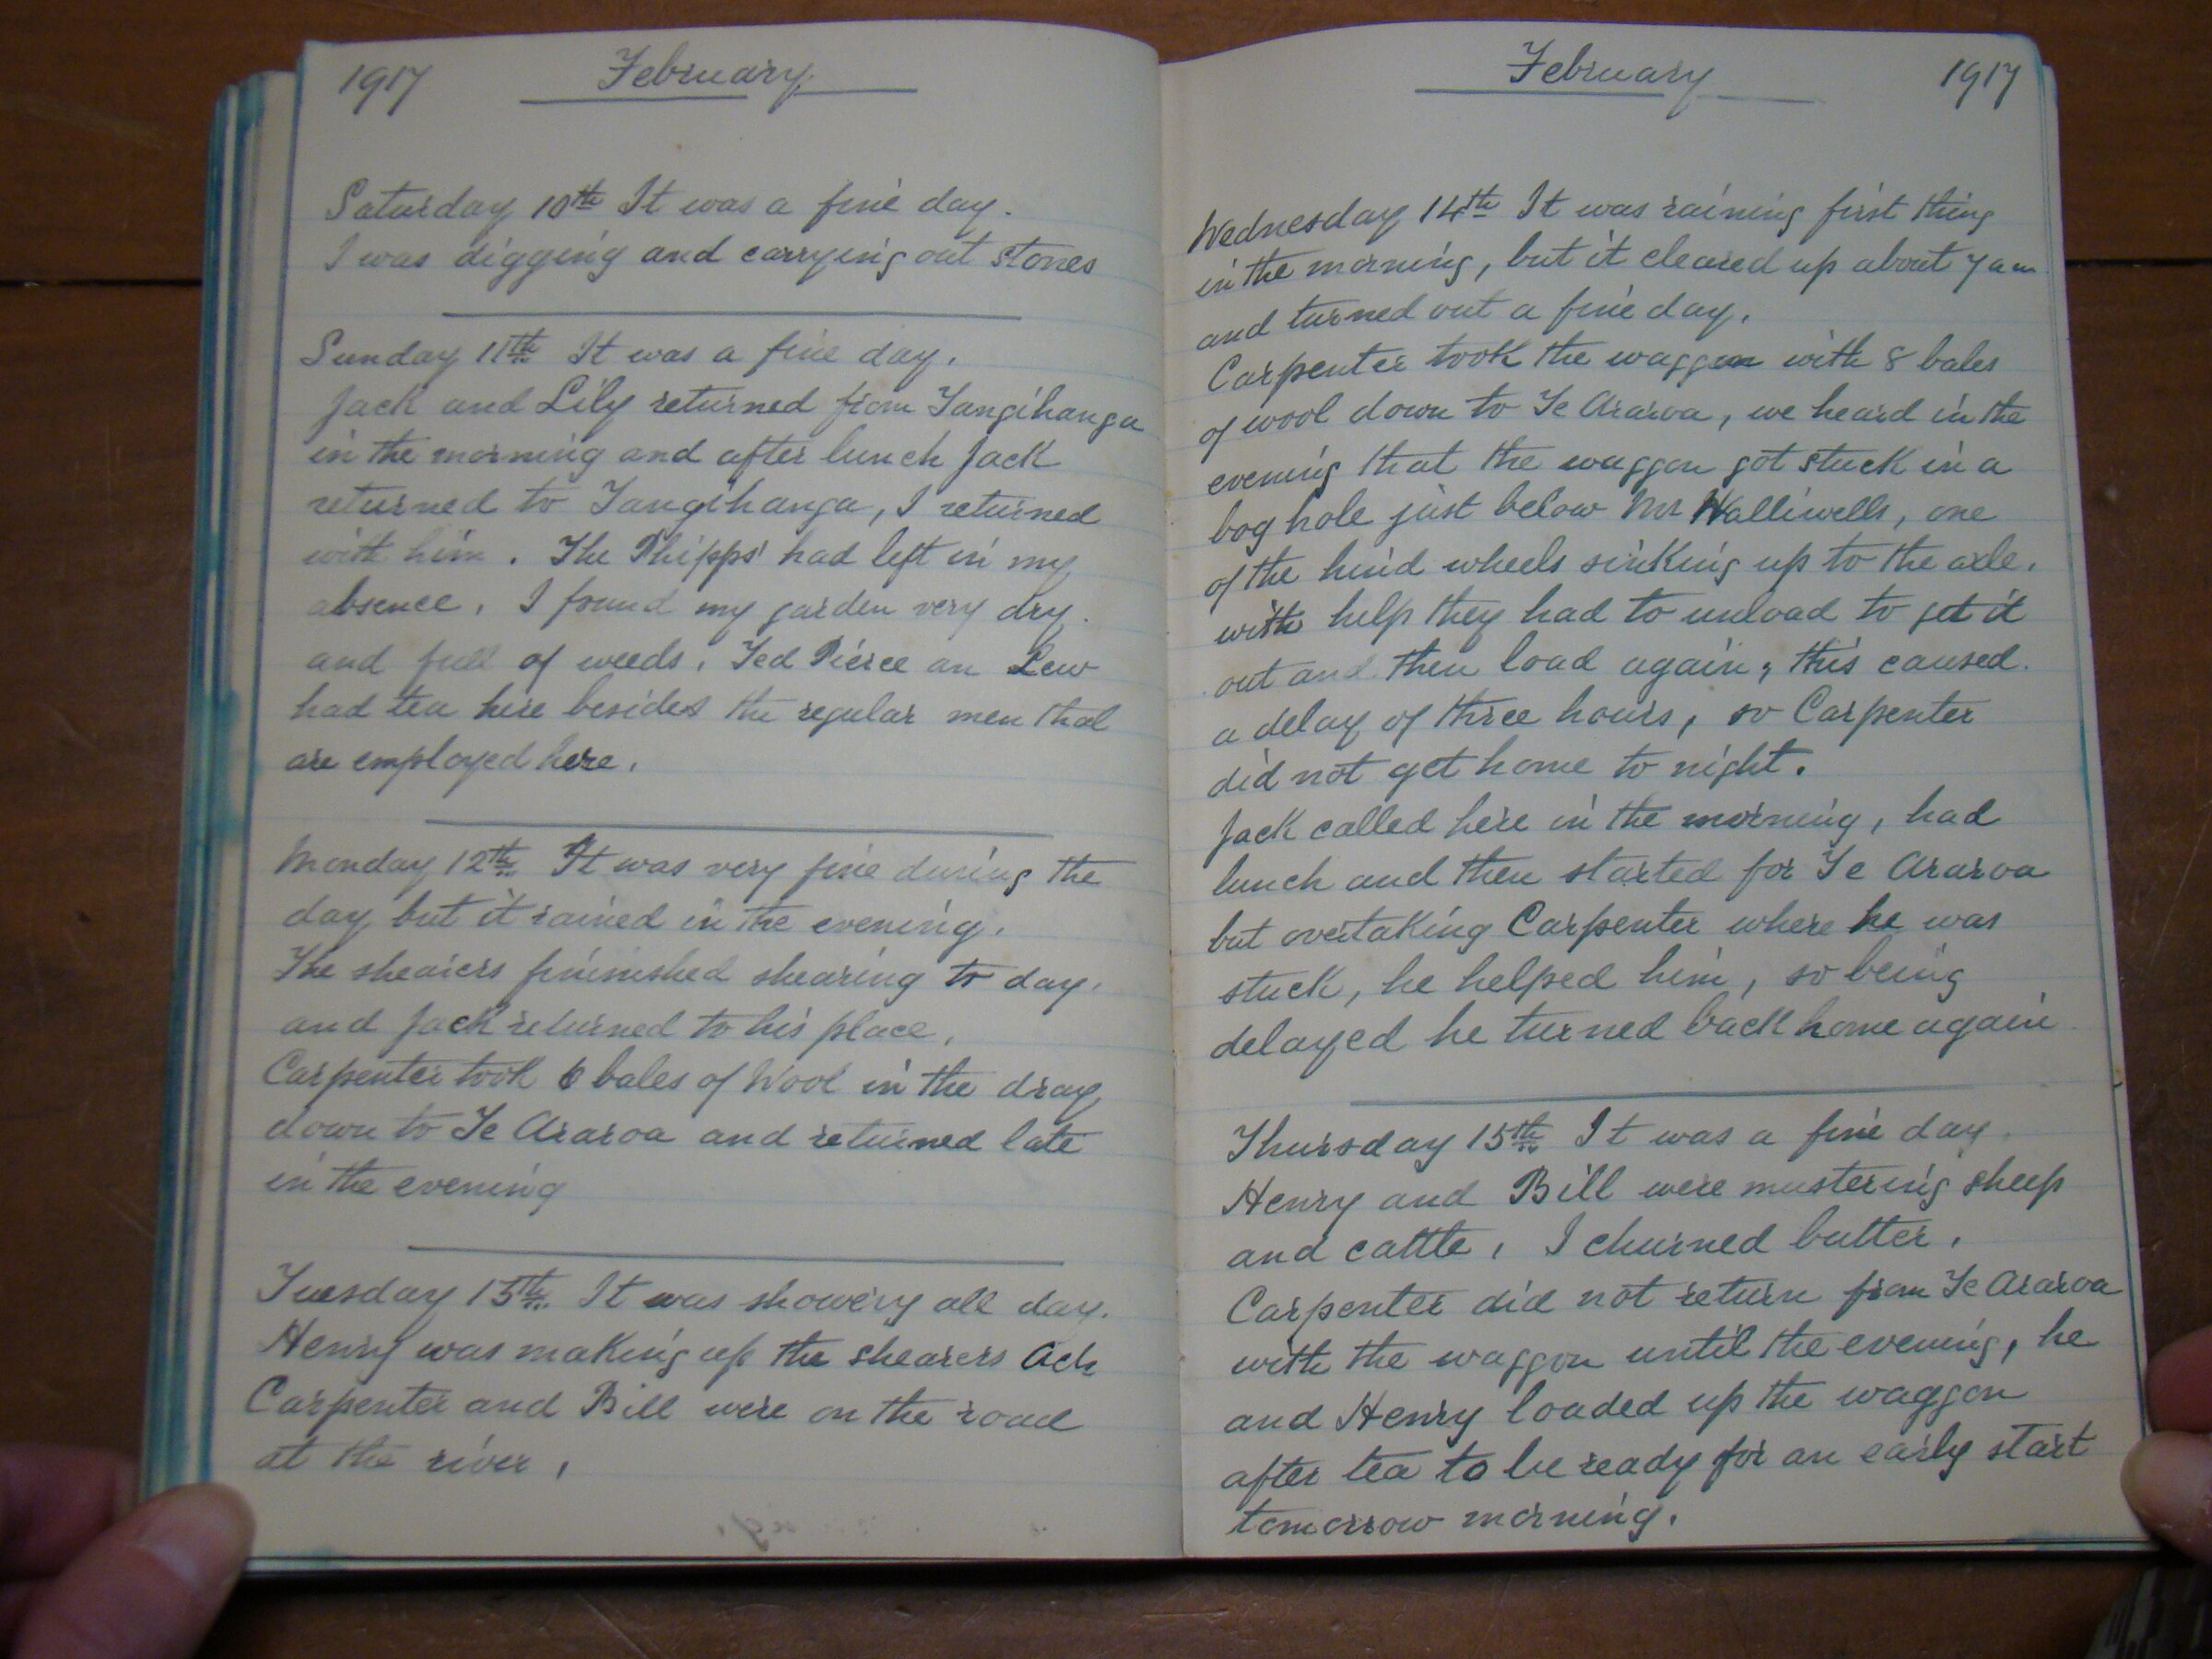 1917 February
Saturday 10th It was a fine day.
I was digging and carrying out stones
Sunday 11th It was a fine day.
Jack and Lily returned from Tangihanga
in the morning and after lunch Jack
returned to Tangihanga, I returned
with him. The Phipps' had left in my
absence. I found my garden very dry.
and full of weeds. Ted Pierce an Lew
had tea here besides the regular men that
are employed here.
Monday 12th It was very fine during the
day but it rained in the evening.
The shearers fininished shearing to day.
and Jack returned to his place.
Carpenter took 6 bales of Wool in the dray
down to Te Araroa and returned late
in the evening
Tuesday 13th It was showery all day.
Henry was making up the shearers a/cs
Carpenter and Bill were on the road
at the river.
February 1917
Wednesday 14th It was raining first thing
in the morning, but it cleared up about 7 am
and turned out a fine day.
Carpenter took the waggon with 8 bales
of wool down to Te Araroa, we heard in the
evening that the waggon got stuck in a
bog hole just below Mr Halliwells, one
of the hind wheels sinking up to the axle.
with help they had to unload to get it
out and then load again, this caused.
a delay of three hours, so Carpenter
did not get home to night.
Jack called here in the morning, had
lunch and then started for Te Araroa
but overtaking Carpenter where he was
stuck, he helped him, so being
delayed he turned back home again
Thursday 15th It was a fine day.
Henry and Bill were mustering sheep
and cattle. I churned butter.
Carpenter did not return from Te Araroa
with the waggon until the evening, he
and Henry loaded up the waggon
after tea to be ready for an early start
tomorrow morning.